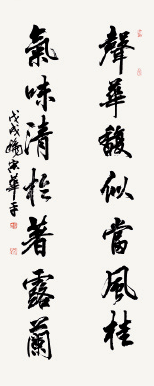 聲華馥似當風桂
氣味清於著露蘭
戊戌